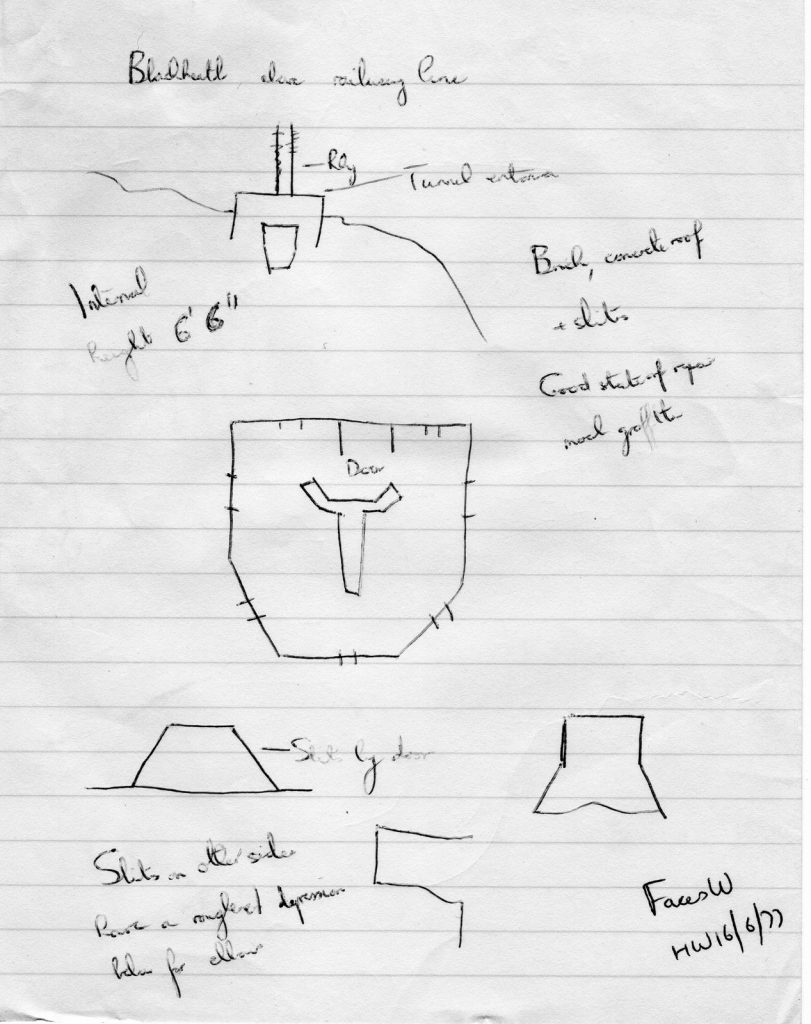 Blackheath above railway line
Rly
Tunnel entrance
Brick, concrete roof
+ slits
Internal
height 6' 6"
Good state of repair
mod graffiti
Door
Slits by door
Slits on other sides
have a roughened depression
below for elbow
Faces W
HW 16/6/77